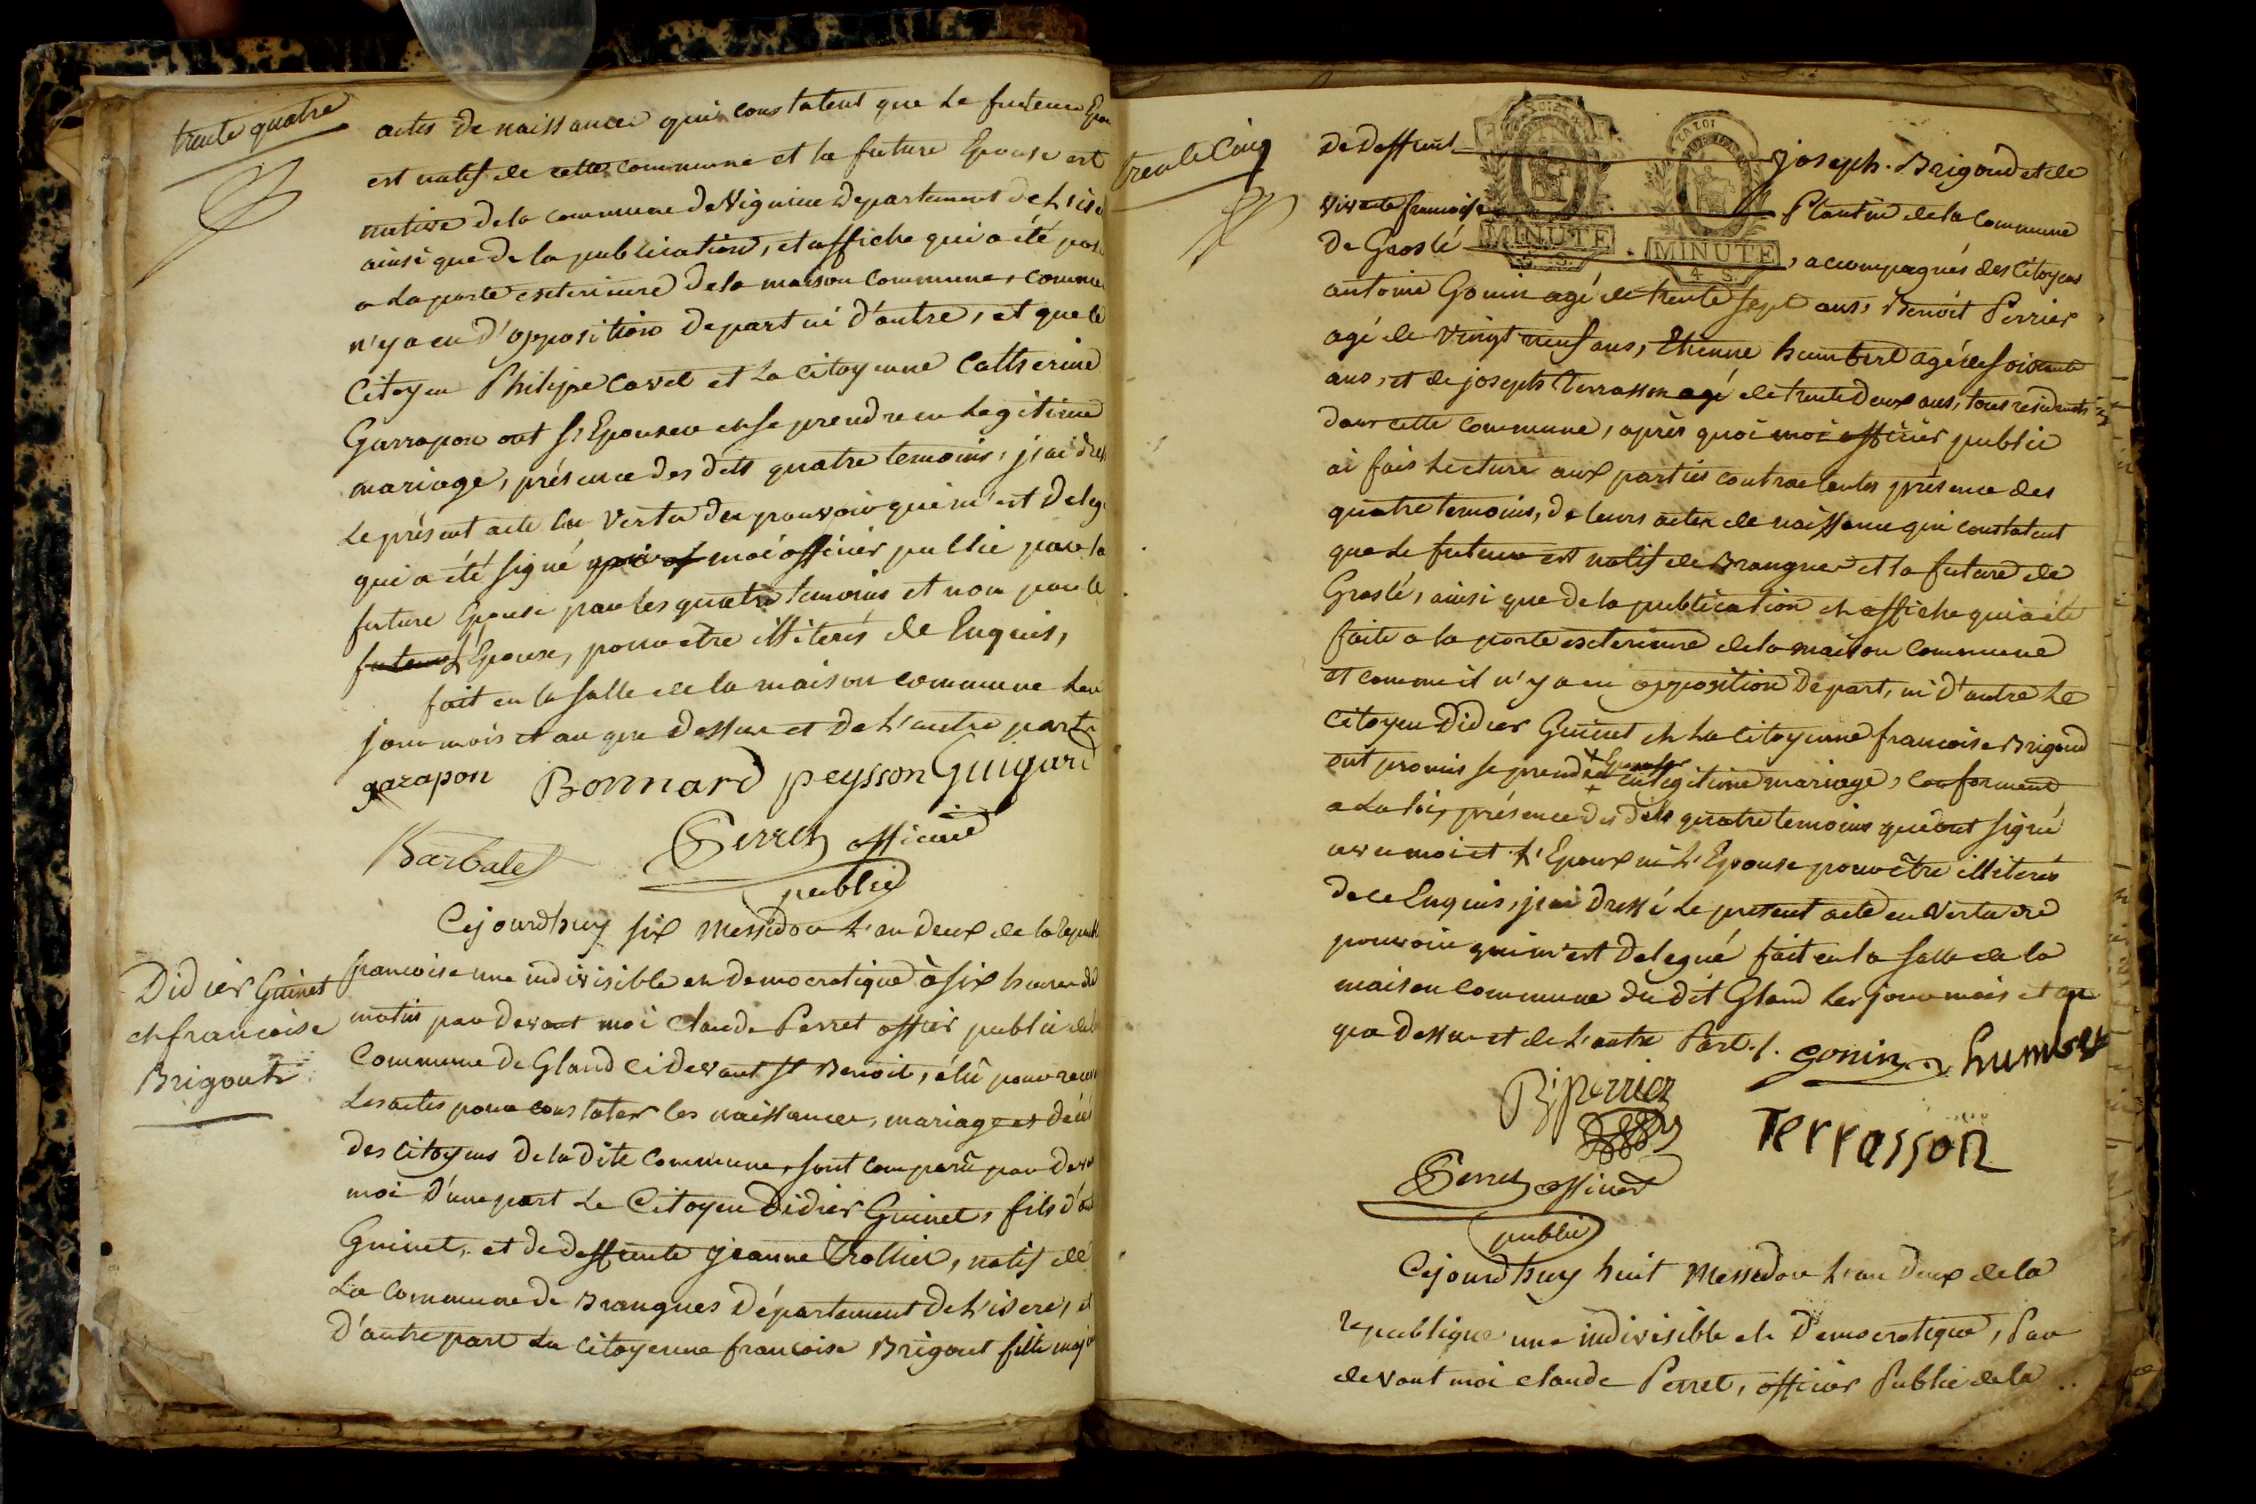 trente quatre
actes de naissance qui constatent que le futeur Epou
est natif de cette commune et la future Epouse est
native de la commune de Vignieu departement de L'ise
ainsi que de la publication, et affiche qui a été pos
a la porte exterieure de la maison commune, comme
n'y a eu d'opposition de part ni d'autre, et que le
Citoyen Philipe Cavet et la citoyenne Catherine
Garrapon ont s'Epouser et se prendre en legitime
mariage, présence des dits quatre temoins, j'ai dres
Le présent acte en vertu du pouvoir qui m'est deleg
qui a été signé moi officier public par la
future Epouse par les quatre temoins et non par le
futeur Epoux, pour etre illiterés de Enquis,
fait en la salle de la maison commune Les
jour mois et an que dessus et de L'autre part
garapon Bonnard peysson Guigard
Barbalet
Perret officier
public
Cejourdhuy six Messidor L'an deux de la repub
Didier Guinet
et francoise
Brigout
francoise une indivisible et democratique à six heures du
matin par devant moi Claude Perret offier public de la
Commune de Gland cidevant St Benoit, élû pour recev
Les actes pour constater les naissances, mariages et décè
des citoyens de la dite commune, sont comparû par deva
moi d'une part Le Citoyen Didier Guinet, fils d'
Guinet, et de deffunte jeanne Trollier, natif de
La commune de Brangues département de L'isere, et
D'autre part La citoyenne francoise Brigout fille maj
trente Cinq
De deffunt joseph. Brigoud et de
vivante francoise Plantin de la Commune
De Groslé, accompagnés des Citoyens
antoine Gonin agé de trente sept ans, Benoit Perrier
agé de vingt neuf ans, Etienne humbert agé de soixante
ans, et de joseph Terrasson agé de trente deux ans, tous residents
dans cette commune, après quoi moi officier public
ai fais Lecture aux parties contractantes présence des
quatre temoins, de leurs actes de naissance qui constatent
que Le futeur est natif de Brangues et la future de
Groslé, ainsi que de la publication et affiche qui a été
faite a la porte exterieure de la maison commune
et comme il n'y a eu opposition de part, ni d'autre Le
Citoyen Didier Guinet et La Citoyenne francoise Brigoud
ont promis se prendre en legitime mariage, conforment
a La loi, présence des dits quatre temoins qui ont signé
avec moi et L'Epoux ni L'Epouse pour être illiterés
de ce Enquis, j'ai dressé Le present acte en vertu du
pouvoir qui m'est delegué fait en la salle de la
maison commune du dit Gland Les jour mois et an
que dessus et de L'autre Part./. gonin humbert
B. perrier
Terrasson
Perret officier
public
Cejourdhuy huit Messidor L'an deux de la
republique une indivisible et democratique, Par
devant moi claude Perret, officier Public de la
MINUTE
4 S.
MINUTE
4 S.
LA LOI